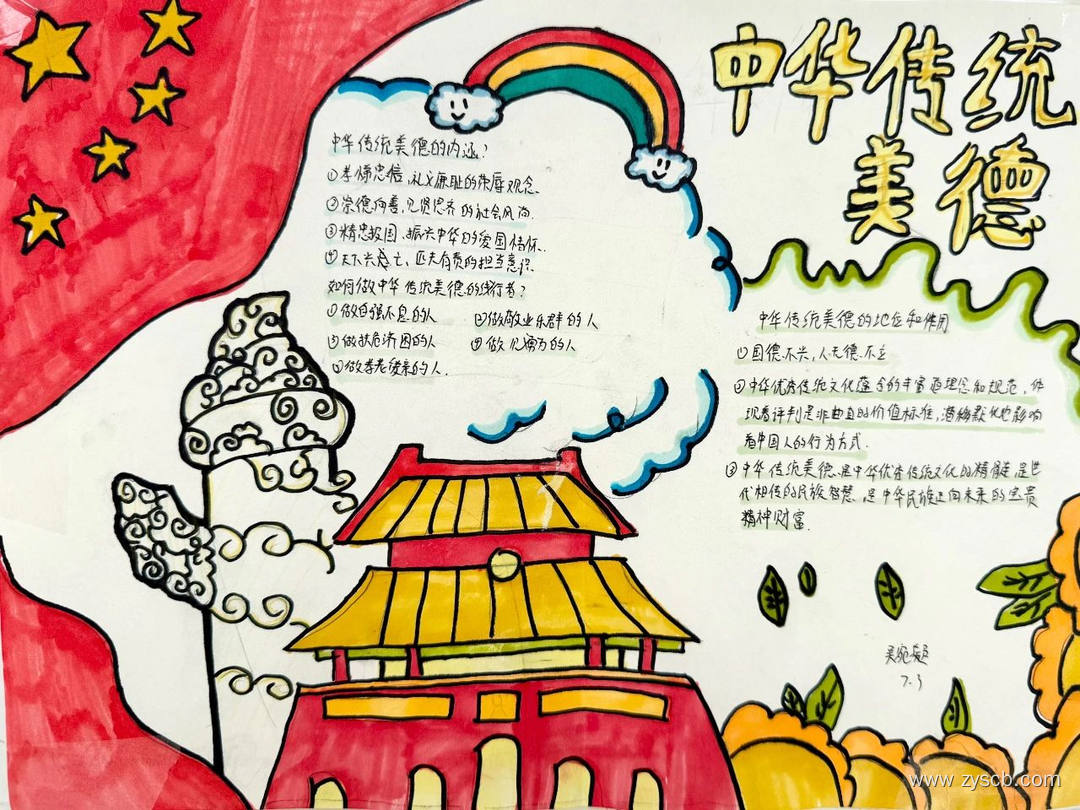 中华传统
美德
中华传统美德的内涵？
①孝悌忠信、礼义廉耻的荣辱观念.
②崇德向善,见贤思齐的社会风尚.
③精忠报国、振兴中华的爱国情怀.
④天下兴亡、匹夫有责的担当意识.
如何做中华传统美德的践行者？
①做自强不息的人 ②做敬业乐群的人
③做扶危济困的人 ④做见义勇为的人
⑤做孝老爱亲的人.
中华传统美德的地位和作用
①国德不兴,人无德不立
②中华优秀传统文化蕴含的丰富道理念和规范,体
现着评判是非曲直的价值标准,潜移默化地影响
着中国人的行为方式.
③中华传统美德是中华优秀传统文化的精髓,是世
代相传的民族智慧,是中华民族走向未来的宝贵
精神财富.
7.3
www.zyscb.com